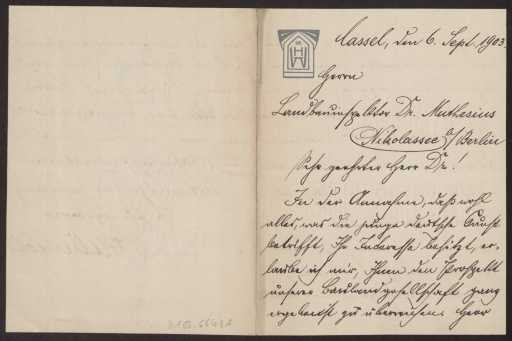 Cassel, den 6. Sept. 1903.
Herrn
Landbauinspektor Dr. Muthesius
Nikolassee b/Berlin
Sehr geehrter Herr Dr.!
In der Annahme, daß wohl
alles, was die junge deutsche Kunst
betrifft, Ihr Interesse besitzt, er-
laube ich mir, Ihnen den Prospekt
unserer Baulandgesellschaft ganz
ergebenst zu überreichen. Herr